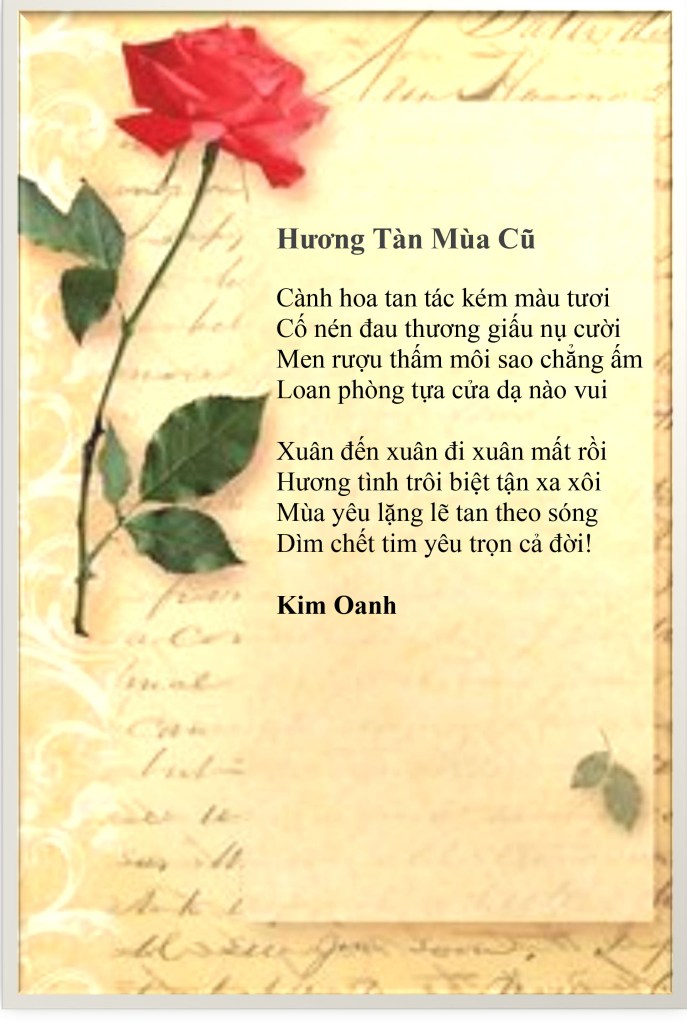 Hương Tàn Mùa Cũ
Cành hoa tan tác kém màu tươi
Cố nén đau thương giấu nụ cười
Men rượu thấm môi sao chẳng ấm
Loan phòng tựa cửa dạ nào vui
Xuân đến xuân đi xuân mất rồi
Hương tình trôi biệt tận xa xôi
Mùa yêu lặng lẽ tan theo sóng
Dìm chết tim yêu trọn cả đời!
Kim Oanh